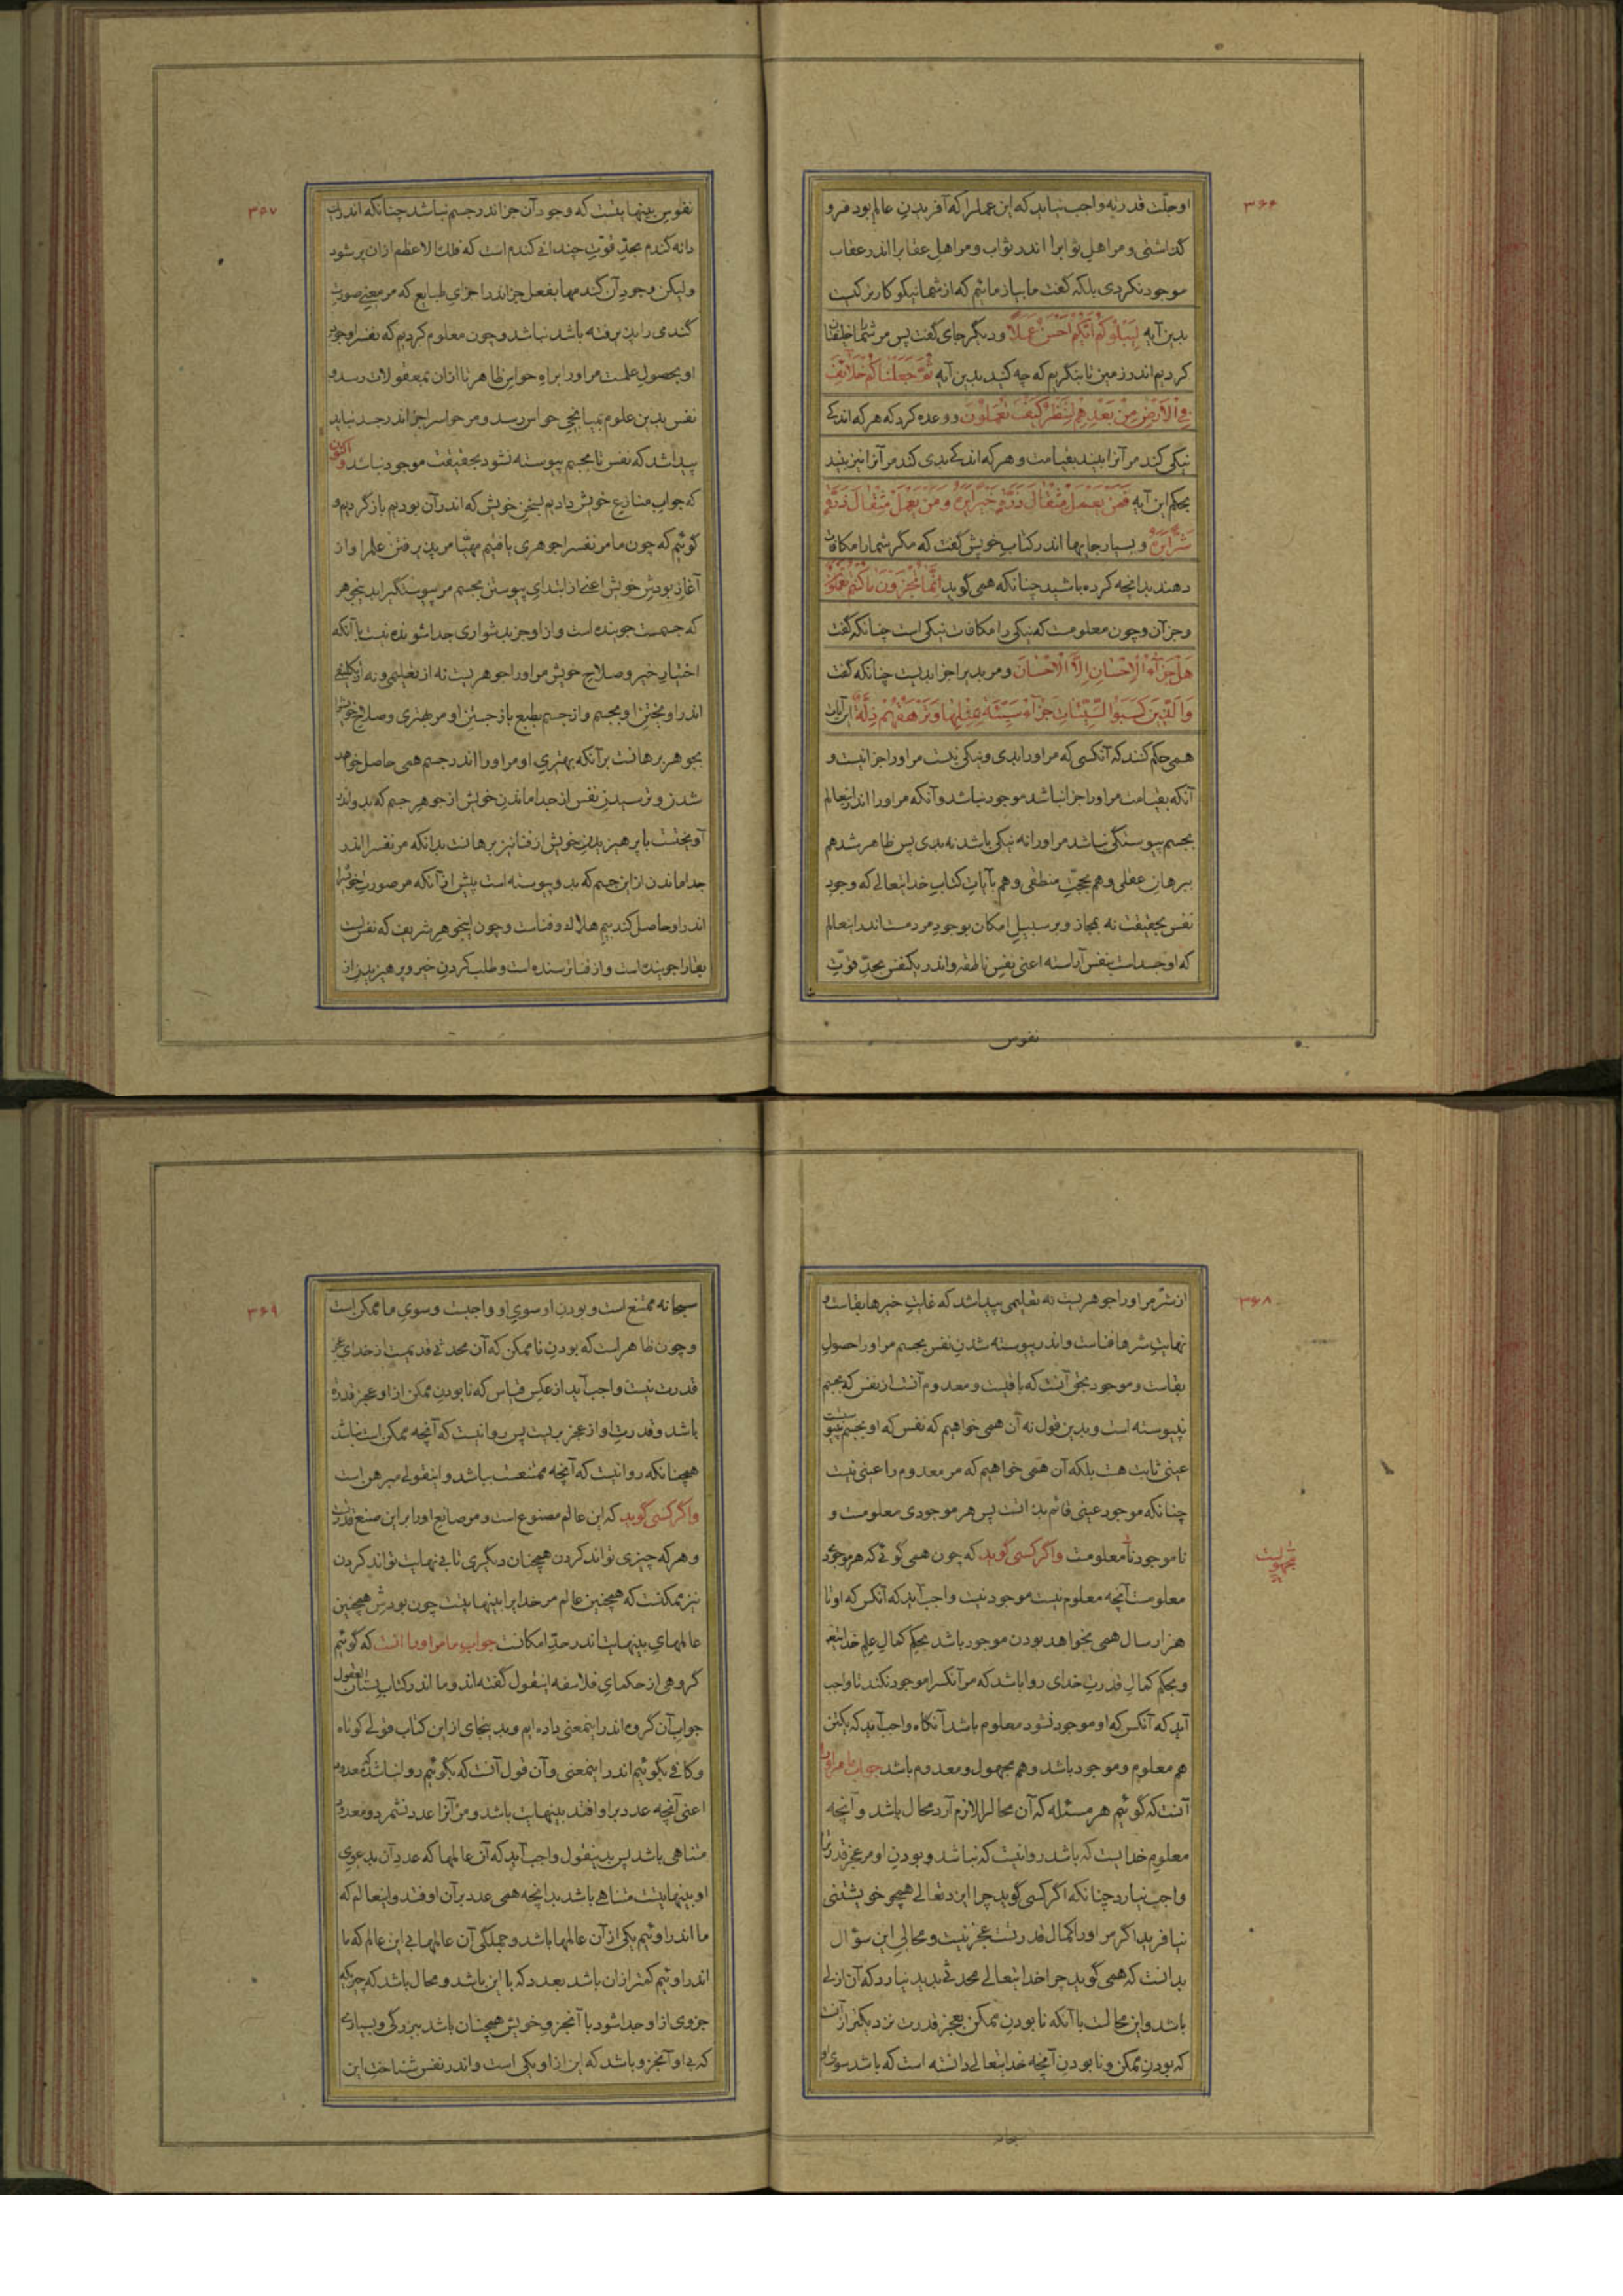 ۳۶۶
او جلّت قدرته واجب نیاید که این عمل را که آفریدنِ عالم بود فرو
گذاشتی و مر اهلِ ثواب را اندر ثواب و مر اهلِ عقاب را اندر عقاب
موجود نکردی بلکه گفت ما بیازمائیم که از شما نیکوکارتر کیست
بدین آیه لِیَبْلُوَکُمْ اَیُّکُمْ اَحْسَنُ عَمَلاً و دیگر جای گفت پس مر شما را خلیفتان
کردیم اندر زمین تا بنگریم که چه کنید بدین آیه ثُمَّ جَعَلْنَاکُمْ خَلَائِفَ
فِی الْاَرْضِ مِنْ بَعْدِهِمْ لِنَنْظُرَ کَیْفَ تَعْمَلُوْنَ و وعده کرد که هر که اندکی
نیکی کند مر آنرا ببیند بقیامت و هر که اندکی بدی کند مر آنرا نیز ببیند
بحکم این آیه فَمَنْ یَعْمَلْ مِثْقَالَ ذَرَّةٍ خَیْراً یَرَهُ وَ مَنْ یَعْمَلْ مِثْقَالَ ذَرَّةٍ
شَرّاً یَرَهُ و بسیار جایها اندر کتابِ خویش گفت که مگر شما را مکافات
دهند بدانچه کرده باشید چنانکه همی گوید اِنَّمَا تُجْزَوْنَ مَا کُنْتُمْ تَعْمَلُوْنَ
و جز آن و چون معلومست که نیکی را مکافات نیکی است چنانکه گفت
هَلْ جَزَاءُ الْاِحْسَانِ اِلَّا الْاِحْسَانُ و مر بدی را جزا بدیست چنانکه گفت
وَالَّذِیْنَ کَسَبُوا السَّیِّئَاتِ جَزَاءُ سَیِّئَةٍ بِمِثْلِهَا وَ تَرْهَقُهُمْ ذِلَّةٌ این آیات
همی حکم کنند که آنکسی که مر او را بدی و نیکی نیست مر او را جزا نیست و
آنکه بقیامت مر او را جزا نباشد موجود نباشد و آنکه مر او را اندر اینعالم
بجسم پیوستگی نباشد مر او را نه نیکی باشد نه بدی پس ظاهر شد هم
ببرهانِ عقلی و هم بحجّتِ منطقی و هم بآیاتِ کتابِ خدایتعالی که وجودِ
نفس بحقیقت نه بمجاز و بر سبیلِ امکان بوجودِ مردمست اندر اینعالم
که او جسد است بنفس آراسته اعنی نفسِ ناطقه و اندر یکنفس بحدِّ قوّت
نفوس
۳۵۷
نفوسِ بینهایتست که وجود آن جز اندر جسم نباشد چنانکه اندر یک
دانه گندم بحدِّ قوّت چندانی گندم است که فلک الاعظم ازان پر شود
ولیکن وجودِ آن گندمها بفعل جز اندر اجزایِ طبایع که مر معنیِ صورتِ
گندمی را پذیرفته باشد نباشد و چون معلوم کردیم که نفس را وجودِ
او بحصولِ علمست مر او را براهِ حواسِّ ظاهر تا ازان بمعقولات رسد و
نفس بدین علوم بمیانجیِ حواس رسد و مر حواس را جز اندر جسد نیابد
پیدا شد که نفس تا بجسم پیوسته نشود بحقیقت موجود نباشد و اکنون
که جوابِ منازعِ خویش دادیم بسخنِ خویش که اندر آن بودیم بازگردیم و
گوئیم که چون ما مر نفس را جوهری یافتیم مهیّا مر پذیرفتنِ علم را و از
آغازِ بودشِ خویش اعنی از ابتدایِ پیوستنِ بجسم مر پیوستگی را بدینجوهر
که جسمست جوینده است و ازو جز بدشواری جدا شونده نیست با آنکه
اختیارِ خیر و صلاحِ خویش مر او را جوهریست نه از تعلیمی و نه از تکلیفی
اندر آویختنِ او بجسم و از جسم بطبع بازجستنِ او مر بهتری و صلاحِ خویش را
بجوهر برهانست بر آنکه بهتریِ او مر او را اندر جسم همی حاصل خواهد
شدن و ترسیدنِ نفس از جدا ماندنِ خویش از جوهرِ جسم که بدو اندر
آویختست با پرهیزیدنِ خویش از فنا نیز برهانست بدانکه مر نفس را اندر
جدا ماندن از این جسم که بدو پیوسته است پیش از آنکه مر صورتِ خویش را
اندر او حاصل کند بیمِ هلاک و فناست و چون اینجوهرِ شریف که نفس است
بقا را جوینده است و از فنا ترسنده است و طلب کردنِ خیر و پرهیزیدن از
۳۶۸
از شرّ مر او را جوهریست نه تعلیمی پیدا شد که غایتِ خیرها بقاست و
نهایتِ شرها فناست و اندر پیوسته شدنِ نفس بجسم مر او را حصولِ
بقاست و موجود بحق آنست که باقیست و معدوم آنست از نفس که بجسم
نپیوسته است و بدین قول نه آن همی خواهیم که نفس که او بجسم نپیوست
عینی ثابت هست بلکه آن همی خواهیم که مر معدوم را عینی نیست
چنانکه موجود عینی قائم بذاتست پس هر موجودی معلومست و
ناموجود نامعلومست واگر کسی گوید که چون همی گوئی که هر موجود
مجهولست
معلومست آنچه معلوم نیست موجود نیست واجب آید که آنکس که او تا
هزار سال همی بخواهد بودن موجود باشد بحکمِ کمالِ علمِ خدایتعالی
و بحکمِ کمالِ قدرتِ خدای روا باشد که مر آنکس را موجود نکند تا واجب
آید که آنکس که او موجود نشود معلوم باشد آنگاه واجب آید که یکتن
هم معلوم و موجود باشد و هم مجهول و معدوم باشد جوابِ ما مر او را
آنست که گوئیم هر مسئله که آن محال را لازم آرد محال باشد و آنچه
معلومِ خدایست که باشد روا نیست که نباشد و بودنِ او مر عجزِ قدرت را
واجب نیارد چنانکه اگر کسی گوید چرا ایزد تعالی همچو خویشتنی
نیافرید اگر مر او را کمالِ قدرتست عجز نیست و محالیِ این سؤال
بدانست که همی گوید چرا خدایتعالی محدثی پدید نیارد که آن ازلی
باشد و این محالست با آنکه نابودنِ ممکن بعجزِ قدرت نزدیکتر از آنست
که بودنِ ممکن و نابودنِ آنچه خدایتعالی دانسته است که باشد سوی او
سبحانه
۳۶۹
سبحانه ممتنع است و بودنِ او سویِ او واجبست و سویِ ما ممکن است
و چون ظاهر است که بودنِ ناممکن که آن محدثی قدیمست از خدای عجز
قدرت نیست واجب آید از عکسِ قیاس که نابودنِ ممکن ازو عجزِ قدرت
باشد و قدرتِ او از عجز بریست پس روا نیست که آنچه ممکن است نباشد
همچنانکه روا نیست که آنچه ممتنعست بباشد و اینقولی مبرهن است
واگر کسی گوید که این عالم مصنوع است و مر صانعِ او را بر این صنع قدرتست
و هر که چیزی تواند کردن همچنان دیگری تا بی نهایت تواند کردن
نیز ممکنست که همچنین عالم مر خدایرا بینهایتست چون بودش همچنین
عالمهایِ بینهایت اندر حدِّ امکانست جوابِ ما مر او را آنست که گوئیم
گروهی از حکمایِ فلاسفه اینقول گفته اند و ما اندر کتابِ بستان العقول
جوابِ آن گروه اندر اینمعنی داده ایم و بدینجای از این کتاب قولی کوتاه
و کافی بگوئیم اندر اینمعنی و آن قول آنست که بگوئیم روا نباشد که معدود
اعنی آنچه عدد بر او افتد بینهایت باشد و مر آنرا عدد نشمرد و معدود
متناهی باشد پس بدینقول واجب آید که آن عالمها که عددِ آن بدعوی
او بینهایتست متناهی باشد بدانچه همی عدد بر آن اوفتد و اینعالم که
ما اندر اوئیم یکی از آن عالمها باشد و جملگیِ آن عالمها بی این عالم که ما
اندر اوئیم کمتر ازان باشد بعدد که با این باشد و محال باشد که چیزیکه
جزوی از او جدا شود با آنجزوِ خویش همچنان باشد ببزرگی و بسیاری
که بی او آنجزو باشد که این از او یکی است و اندر نفس شناختِ این